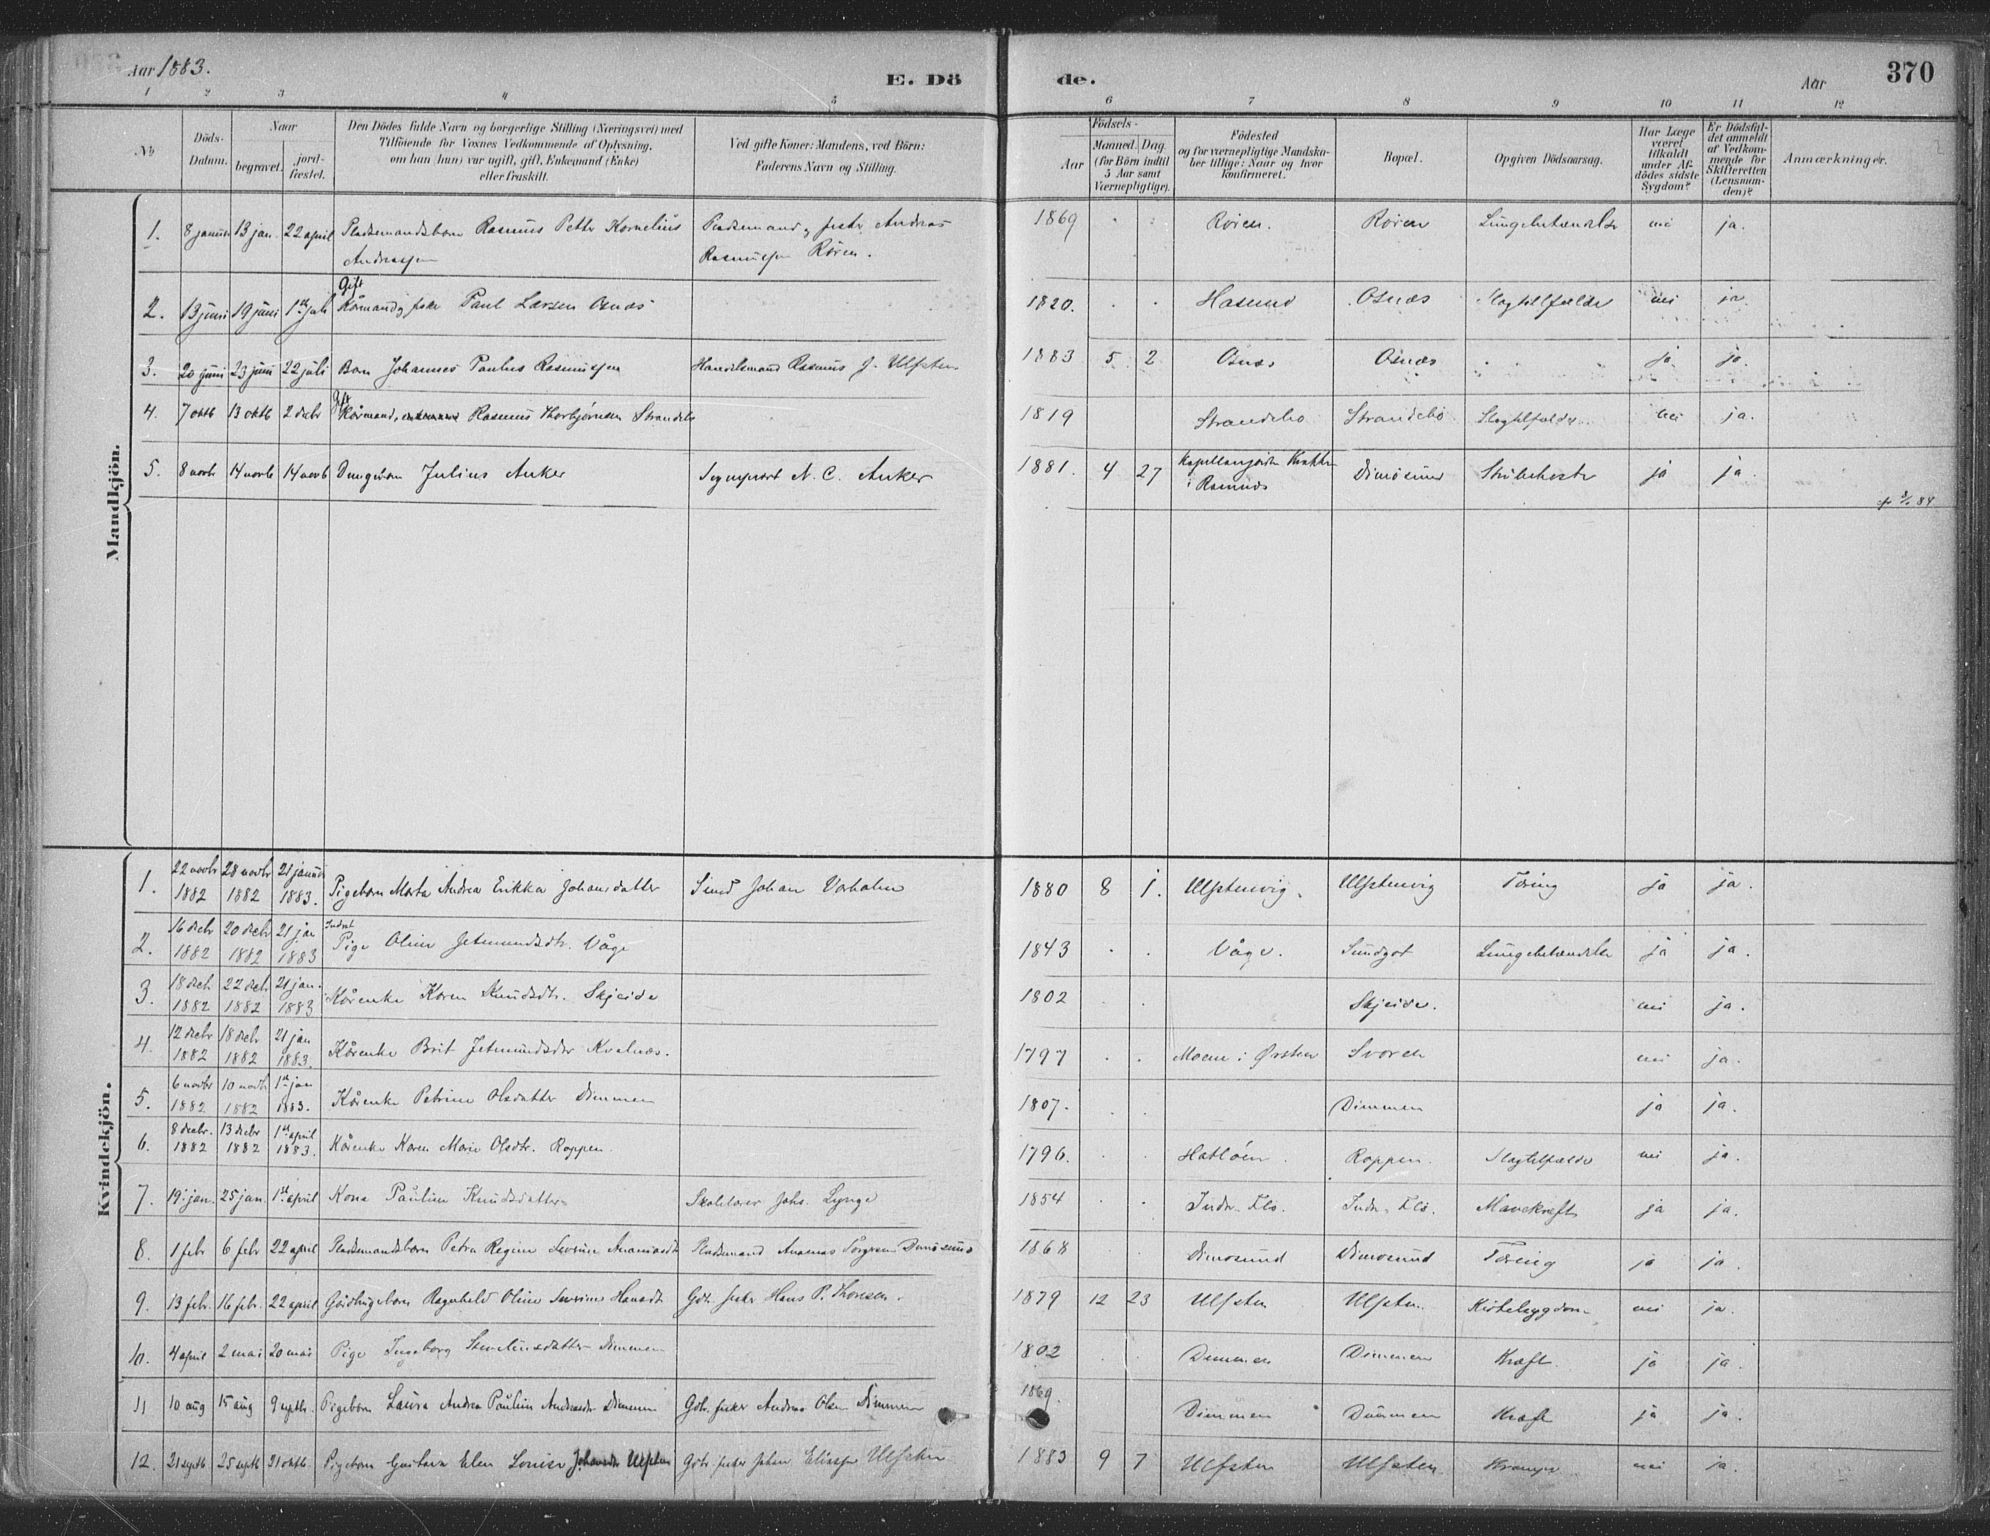 Aar 1883.
E. Dö
de.
Aar
370
1 2 3 4 5 6 7 8 9 10 11 12
No
Döds-
Datum.
Naar
begravet.
jord-
fæstet.
Den Dödes fulde Navn og borgerlige Stilling (Næringsvei) med
Tilföiende for Voxnes Vedkommende af Oplysning,
om han (hun) var ugift, gift, Enkemand (Enke)
eller fraskilt.
Ved gifte Koner: Mandens, ved Börn:
Faderens Navn og Stilling.
Födsels-
Aar
Maaned. Dag
(for Börn indtil
5 Aar samt
Værnepligtige).
Födested
og for værnepligtige Mandska-
ber tillige: Naar og hvor
konfirmeret.
Bopæl.
Opgiven Dödsaarsag.
Har Læge
været
tilkaldt
under Af-
dödes sidste
Sygdom?
Er Dödsfal-
det anmeldt
af Vedkom-
mende for
Skifteretten
(Lensmän-
den)?
Anmærkninger.
Mandkjön.
1. 8 januar 13 jan. 22 april Pladsemandsbarn Rasmus Petter Kornelius Pladsemand, fisker Andreas 1869 Røren. Røren Lungebetændelse nei ja.
Andreassen Rasmussen Røren.
Gift
2. 13 juni 19 juni 1ste juli Kårmand, fisker Paul Larsen Osnæs 1820. Hasund Osnæs Slagtilfælde nei ja
3. 20 juni 23 juni 22 juli Barn Johannes Paulus Rasmussen Handelsmand Rasmus J. Ulfsten 1883 5 2 Osnæs Osnæs ja ja
Gift
4. 7 oktb 13 oktb 2 decbr Kårmand, Rasmus Thorbjørnsen Strandebø 1819 Strandebø Strandebø Slagtilfælde nei ja.
5. 8 novb 14 novb 14 novb Drengebarn Julius Anker N. C. Anker 1881. 4 27 Dimøsund Strubehoste ja ja.
84
Kvindekjön.
1. 22 novbr 28 novbr 21 januar
1882 1882 1883. Pigebarn Marta Andrea Erikka Johansdatter Smed Johan Varholm 1880 8 1. Ulfstenvig. Ulfstenvig Tæring ja ja.
2. 16 decbr 20 decbr 21 jan
1882 1882 1883 Pige Oline Jetmundsdtr. Våge 1843 Våge. Sundgot Lungebetændelse ja ja.
3. 18 decb 22 decb 21 jan.
1882 1882 1883 Kårenke Karen Knudsdtr. Skjeide 1802 Skjeide. nei ja.
4. 12 decbr 18 decb 21 jan
1882 1882 1883. Kårenke Brit Jetmundsdtr Kvalnæs. 1797 Moene i Ørsten Svoren nei ja.
5. 6 novbr 10 novb 1ste jan
1882 1882 1883. Kårenke Petrine Olsdatter Dimmen 1807. Dimmen ja ja.
6. 8 decbr. 13 decbr 1ste april
1882 1882 1883. Kårenke Karen Marie Olsdtr. Roppen. 1796. Hatløen Roppen. Slagtilfælde nei ja.
7. 19 jan. 25 jan. 1ste april Kona Pauline Knudsdatter Skolelærer Johs. Lynge 1854 Indr. Flø. Indr. Flø. Mavekræft ja ja.
8. 1 febr 6 febr 22 april Pladsemandsbarn Petra Regine Severine Ananiasdtr Pladsemand Ananias Dimøsund 1868 Dimøsund Dimøsund Tæring ja ja.
9. 13 febr. 16 febr. 22 april Gårdbrugebarn Ragnhild Oline Severine Hansdt Gdb. fisker Hans P. Thoresen. 1879 12 23 Ulfsten Ulfsten Kirtelsygdom nei ja.
10. 4 april 2 mai 20 mai Pige Ingeborg Dimmen 1802 Dimmen Dimmen Kræft. ja ja.
11 10 aug 15 aug 9 septb. Pigebarn Laura Andrea Pauline Andreasdtr Dimmen Gdb. fisker Andreas Olsen Dimmen 1869. Dimmen Dimmen Kræft ja ja.
12. 21 septb 25 septb 21 oktb. Pigebarn Gustava Elen Lovise Johansdtr Ulfsten Gdb. fisker Johan Eliassen Ulfsten 1883 9 7 Ulfsten Ulfsten. Krampe nei ja.